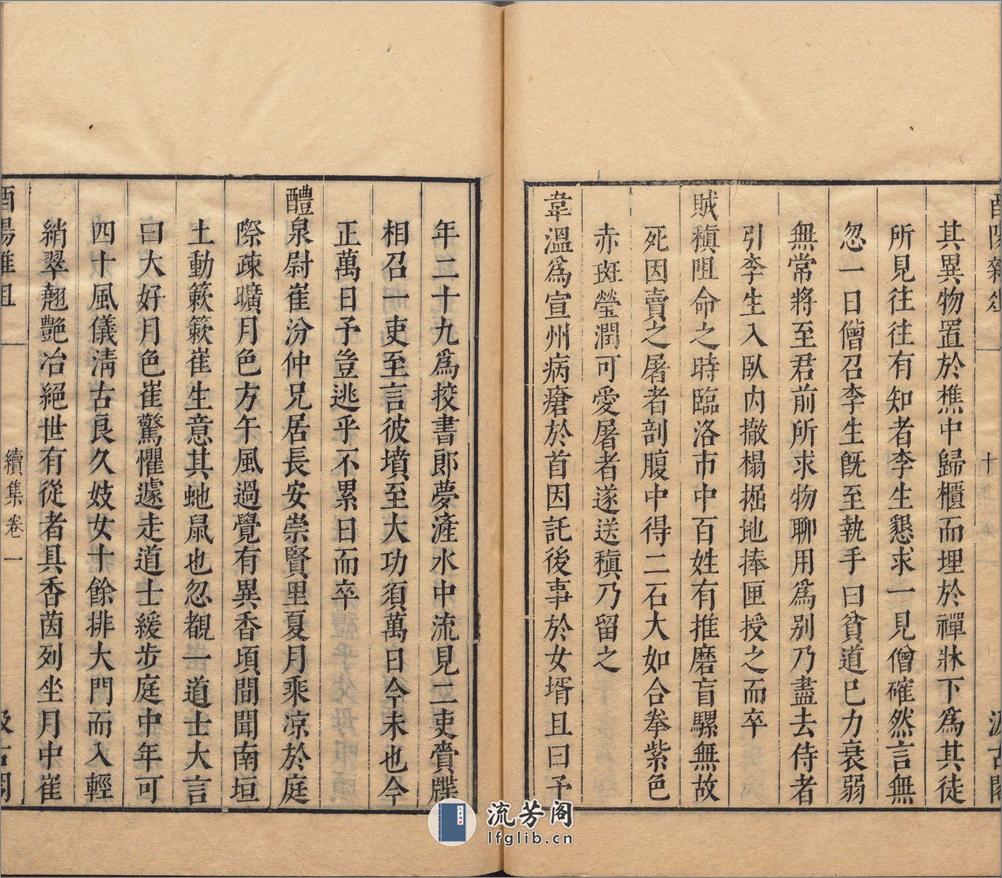 酉陽雜俎 十 汲古閣
其異物置於樵中歸櫃而埋於禪牀下為其徒
所見往往有知者李生懇求一見僧確然言無
忽一日僧召李生旣至執手曰貧道已力衰弱
無常將至君前所求物聊用爲別乃盡去侍者
引李生入臥內撤榻掘地捧匣授之而卒
賊稹阻命之時臨洛市中百姓有推磨盲騾無故
死因賣之屠者剖腹中得二石大如合拳紫色
赤斑瑩潤可愛屠者遂送稹乃留之
韋溫爲宣州病瘡於首因託後事於女壻且曰予
年二十九爲挍書郎夢滻水中流見二吏賫牒
相召一吏至言彼墳至大功須萬日今未也今
正萬日予豈逃乎不累日而卒
醴泉尉崔汾仲兄居長安崇賢里夏月乘凉於庭
際疎曠月色方午風過覺有異香頃間聞南垣
土動簌簌崔生意其虵鼠也忽覩一道士大言
曰大好月色崔驚懼遽走道士緩步庭中年可
四十風儀淸古良久妓女十餘排大門而入輕
綃翠翹艷冶絕世有從者具香茵列坐月中崔
酉陽雜俎 續集卷一 汲古閣
流芳阁
lfglib.cn